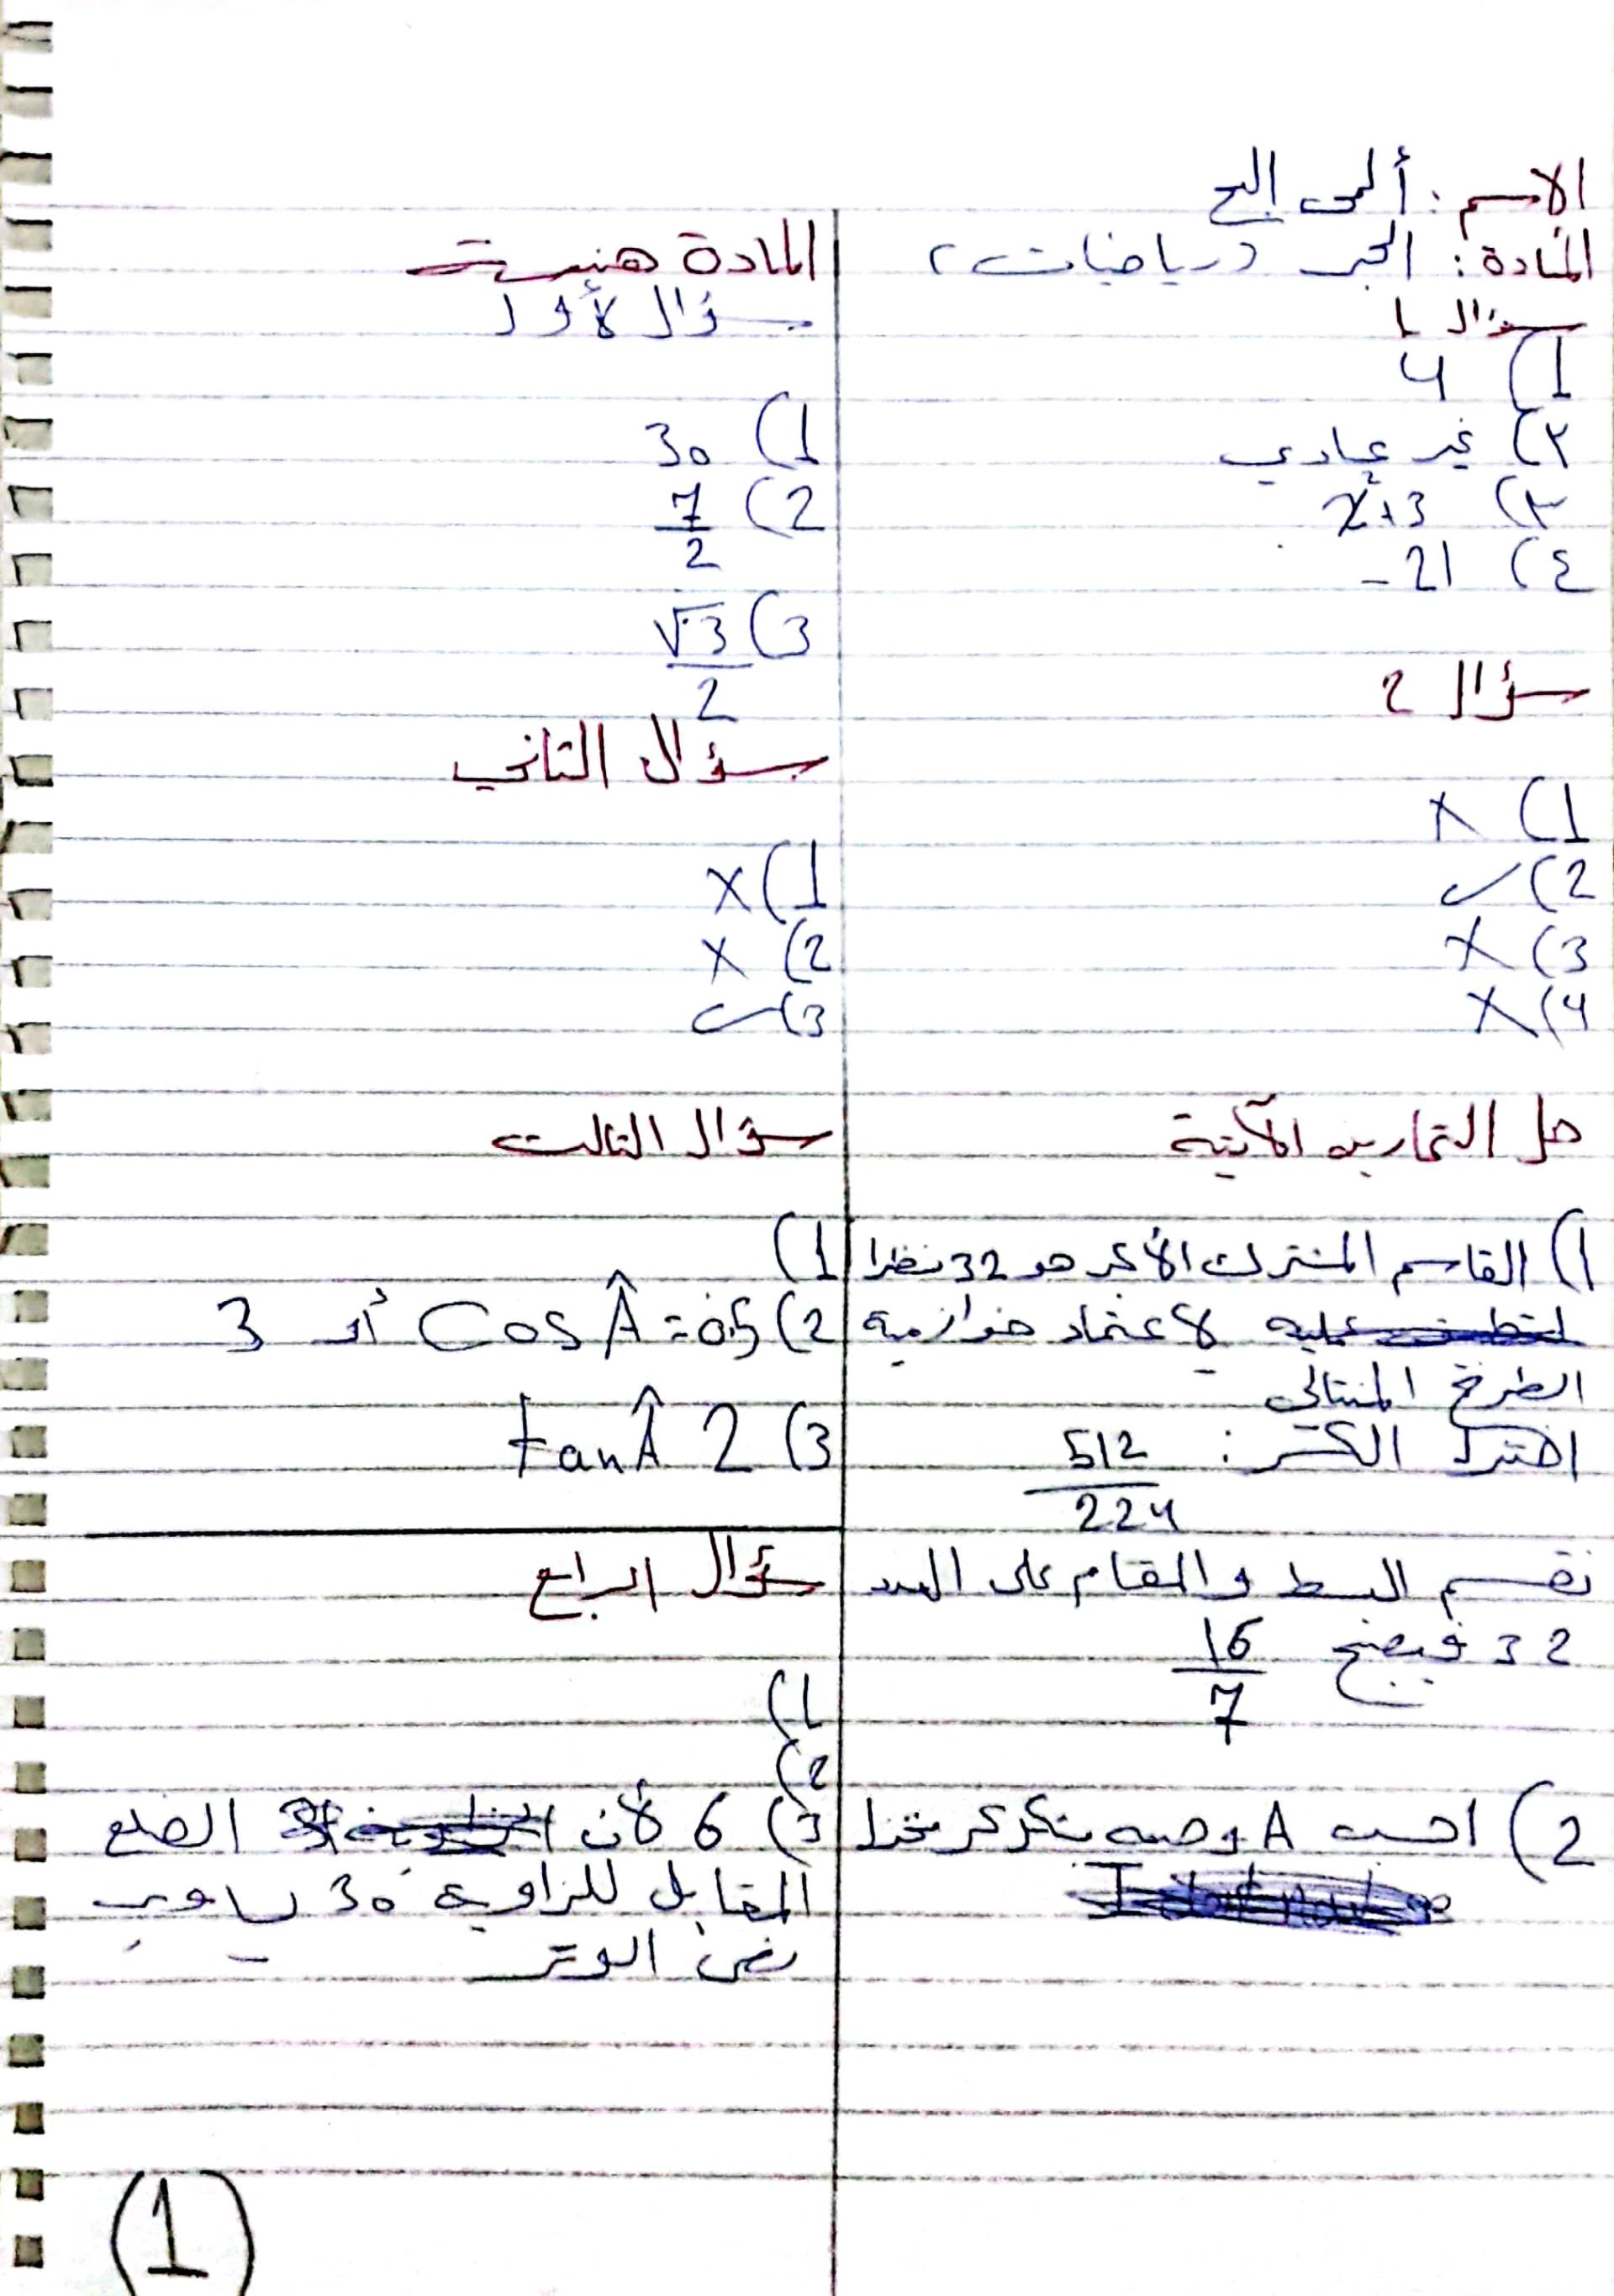 الاسم : ألمى البج
المادة : الجبر (رياضيات)
سؤال 1
1) 4
٢) غير عادي
٣) x²+3
٤) -21
سؤال 2
1) X
2) ✓
3) X
4) X
حل التمارين الآتية
1) القاسم المشترك الأكبر هو 32 نظرا
عليه لاعتماد خوارزمية
الطرح المتتالي
اختزل الكسر : 512/224
نقسم البسط والمقام على العدد
32 فيصبح 16/7
2) احسب A وضعه بشكل كسر مختزل
المادة هندسة
سؤال لأول
1) 30
2) 7/2
3) √3/2
سؤال الثاني
1) X
2) X
3) ✓
سؤال الثالث
1)
2) Cos Â = 0.5 أو 3
3) tan Â 2
سؤال الرابع
1)
2)
3) 6 لأن الضلع
المقابل للزاوية 30 يساوي
نصف الوتر
1